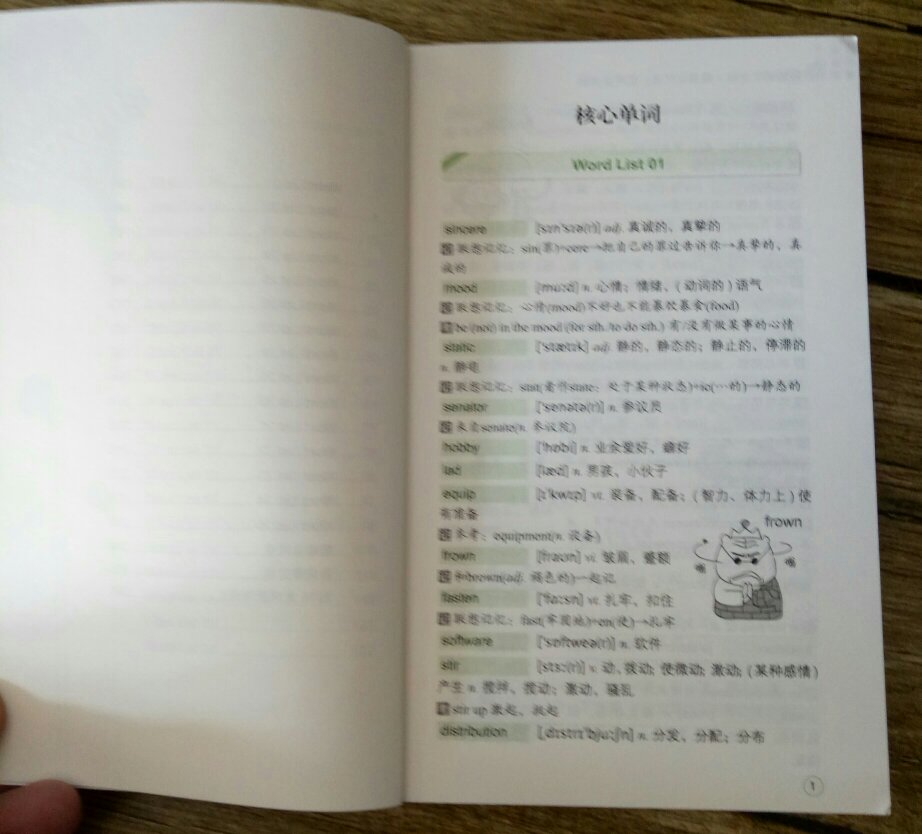 核心单词
Word List 01
sincere [sɪn'sɪə(r)] adj. 真诚的、真挚的
记 联想记忆：sin(罪)+cere→把自己的罪过告诉你→真挚的、真
诚的
mood [muːd] n. 心情；情绪、(动词的)语气
记 联想记忆：心情(mood)不好也不能暴饮暴食(food)
be (not) in the mood (for sth./to do sth.) 有/没有做某事的心情
static ['stætɪk] adj. 静的、静态的；静止的、停滞的
n. 静电
记 联想记忆：stat(看作state：处于某种状态)+ic(…的)→静态的
senator ['senətə(r)] n. 参议员
记 来自senate(n. 参议院)
hobby ['hɒbi] n. 业余爱好、癖好
lad [læd] n. 男孩、小伙子
equip [ɪ'kwɪp] vt. 装备、配备；(智力、体力上)使
有准备
记 参考：equipment(n. 设备)
frown
frown [fraʊn] vi. 皱眉、蹙额
嗡 嗡
记 和brown(adj. 褐色的)一起记
fasten ['fɑːsn] vt. 扎牢、扣住
记 联想记忆：fast(牢固地)+en(使)→扎牢
software ['sɒftweə(r)] n. 软件
stir [stɜː(r)] v. 动、拨动；使微动；激动；(某种感情)
产生 n. 搅拌、搅动；激动、骚乱
stir up 激起、挑起
distribution [ˌdɪstrɪ'bjuːʃn] n. 分发、分配；分布
1